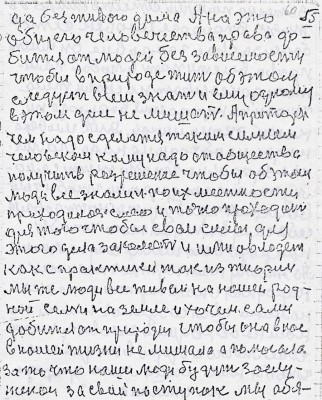 да без живого дома А на это
общего человечества права до-
биться от людей без зависемости
чтобы в природе жит об этом
следует всем знат и ему одному
в этом деле не мешат. А притозен
чем надо сделатся таким сильным
человеком кому надо от общества
получить разрешение чтобы об этом
люди все знали по их местности
приходилося и точно проходит
для того чтобы свои силы для
этого дела заколит и ими владет
как с практики так из тиории
мы же люди все живем на нашей род-
ной семли на земле и хочем сами
добится от природы чтобы она в нас
в нашей жизни не мишала а помогала
за то что наши люди будут заслу-
женои за свой поступок мы обя-